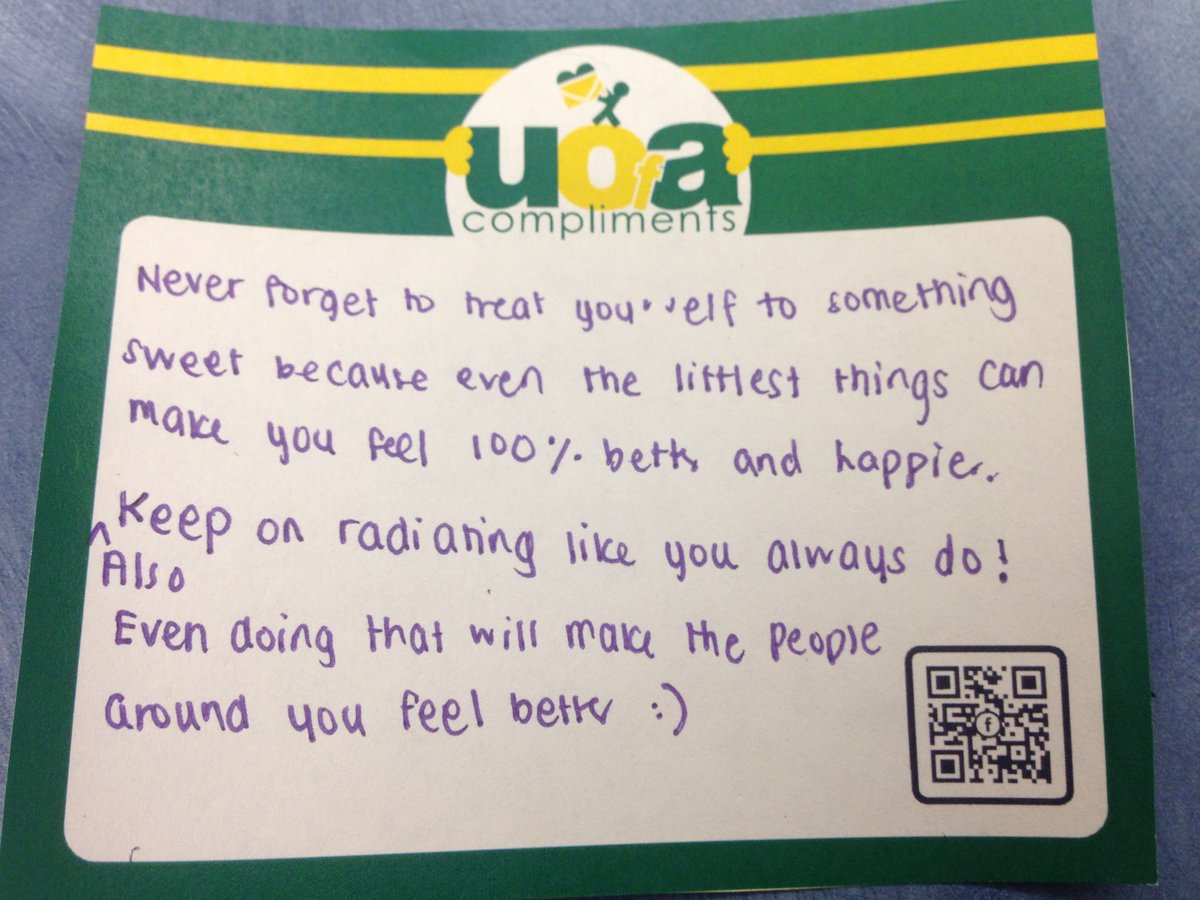 uofa
compliments
Never forget to treat yourself to something
sweet because even the littlest things can
make you feel 100% better and happier.
^Keep on radiating like you always do!
Also
Even doing that will make the people
around you feel better :)
f